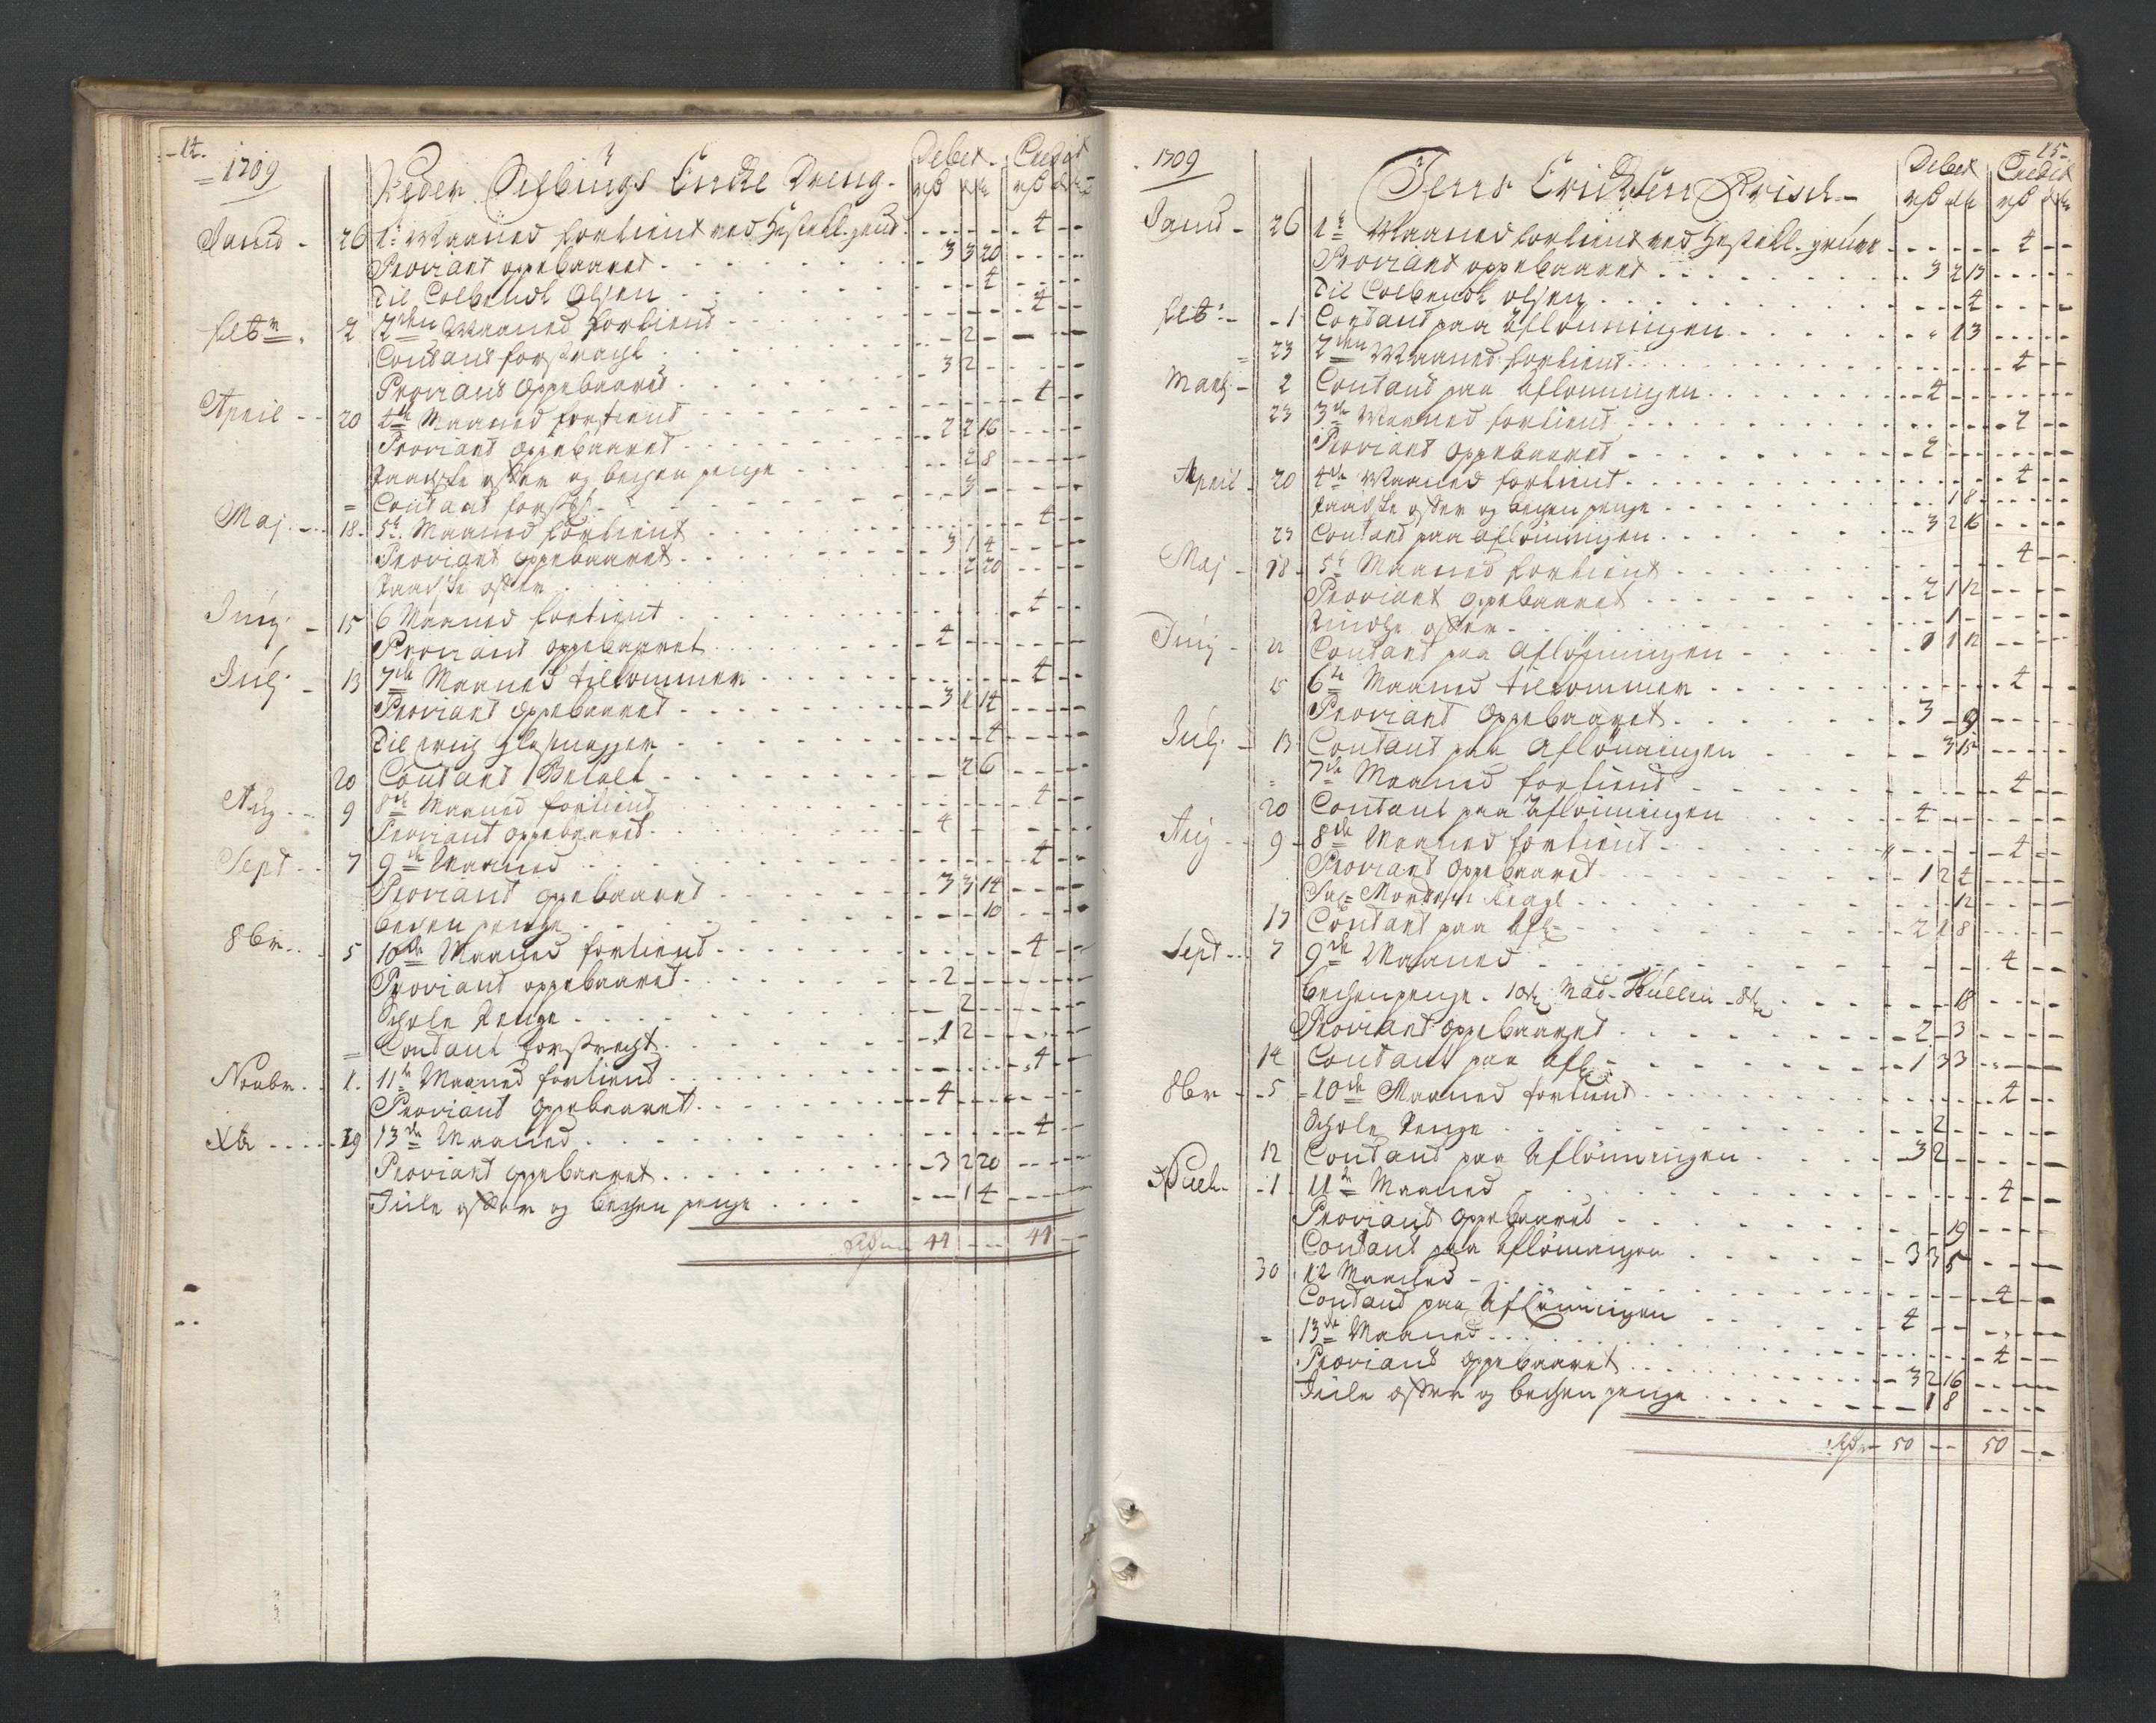 14.
1709
Peder Selbings Encke Dreng. Debet. Credit
Janu - 26 1te Maaned fortient ved Gestell. grub. 4 - -
Proviant oppebaaret 3 3 20
Til Colbendt Olsen 4
Feb 2 2den Maaned fortient 4 - -
Contant forstragt - 2 -
Proviant Oppebaaret 3 2 -
April 20 4de Maaned fortient 4 - -
Proviant Oppebaaret 2 2 16
Taashe offer og becken penge 2 8
= Contant 3 -
Maj 18 5te Maaned fortient 4 - -
Proviant Oppebaaret 3 1 4
offer 2 20
Junj 15 6 Maaned fortient 4 - -
Proviant oppebaaret 4 - -
Julj 13 7de Maaned tilkommer 4 - -
Proviant Oppebaaret 3 1 14
Til 4
20 Contant Betalt - 2 6
Aug 9 8de Maaned fortient 4 - -
Proviant oppebaaret 4 - -
Sept 7 9de Maaned 4 - -
Proviant oppebaaret 3 3 14
becken penge 10
8br 5 10de Maaned fortient 4 - -
Proviant oppebaaret 2 - -
Schole Penge 2 -
= Contant forstragt 1 2 -
Novbr 1. 11te Maaned fortient 4 - -
Proviant Oppebaaret 4 - -
Xbr 29 13de Maaned 4 - -
Proviant oppebaaret 3 2 20
Jule offer og becken penge - 1 4
44 - - 44 - -
15.
1709
Jens Erichsen Debet Credit
Janu - 26 1te Maaned fortient ved Gestell. grube 4 - -
Proviant oppebaaret 3 2 13
Til Colbendt Olsen 4
Feb: 1 Contant paa Aflønningen 13
= 23 2den Maaned fortient 4 - -
Marty 2 Contant paa Aflønningen 4 - -
23 3de Maaned fortient 2
Proviant Oppebaaret 2 - -
April 20 4de Maaned fortient 4 - -
Taashe offer og becken penge 18
23 Contant paa Aflønningen 3 2 16
Maj 18 5te Maaned fortient 4 - -
Proviant Oppebaaret 2 1 12
offer 1 -
Junj Contant paa Afløningen 1 1 12
15 6te Maaned tilkommer 4 - -
Proviant Oppebaaret 3 - 9
Julj 13 Contant paa Aflønningen - 3 15
= 7de Maaned fortient 4 - -
20 Contant paa Aflønningen 4 - -
Aug 9 8de Maaned fortient 4 - -
Proviant Oppebaaret 1 2 4
12
17 Contant paa Afl 2 1 8
Sept 7 9de Maaned 4 - -
becken penge - 10 Mad. - 8 18
Proviant Oppebaaret 2 - 3
14 Contant paa Afl 1 3 3
8br 5 10de Maaned fortient 4 - -
Schole Penge 2 -
12 Contant paa Aflønningen 3 2 -
1 11te Maaned 4 - -
Proviant Oppebaaret 19
Contant paa Aflønningen 3 3 5
30 12 Maaned 4 - -
Contant paa Aflønningen 4 - -
= 13de Maaned 4 - -
Proviant Oppebaaret 3 2 16
Jule offer og becken penge 1 8
50 - - 50 - -